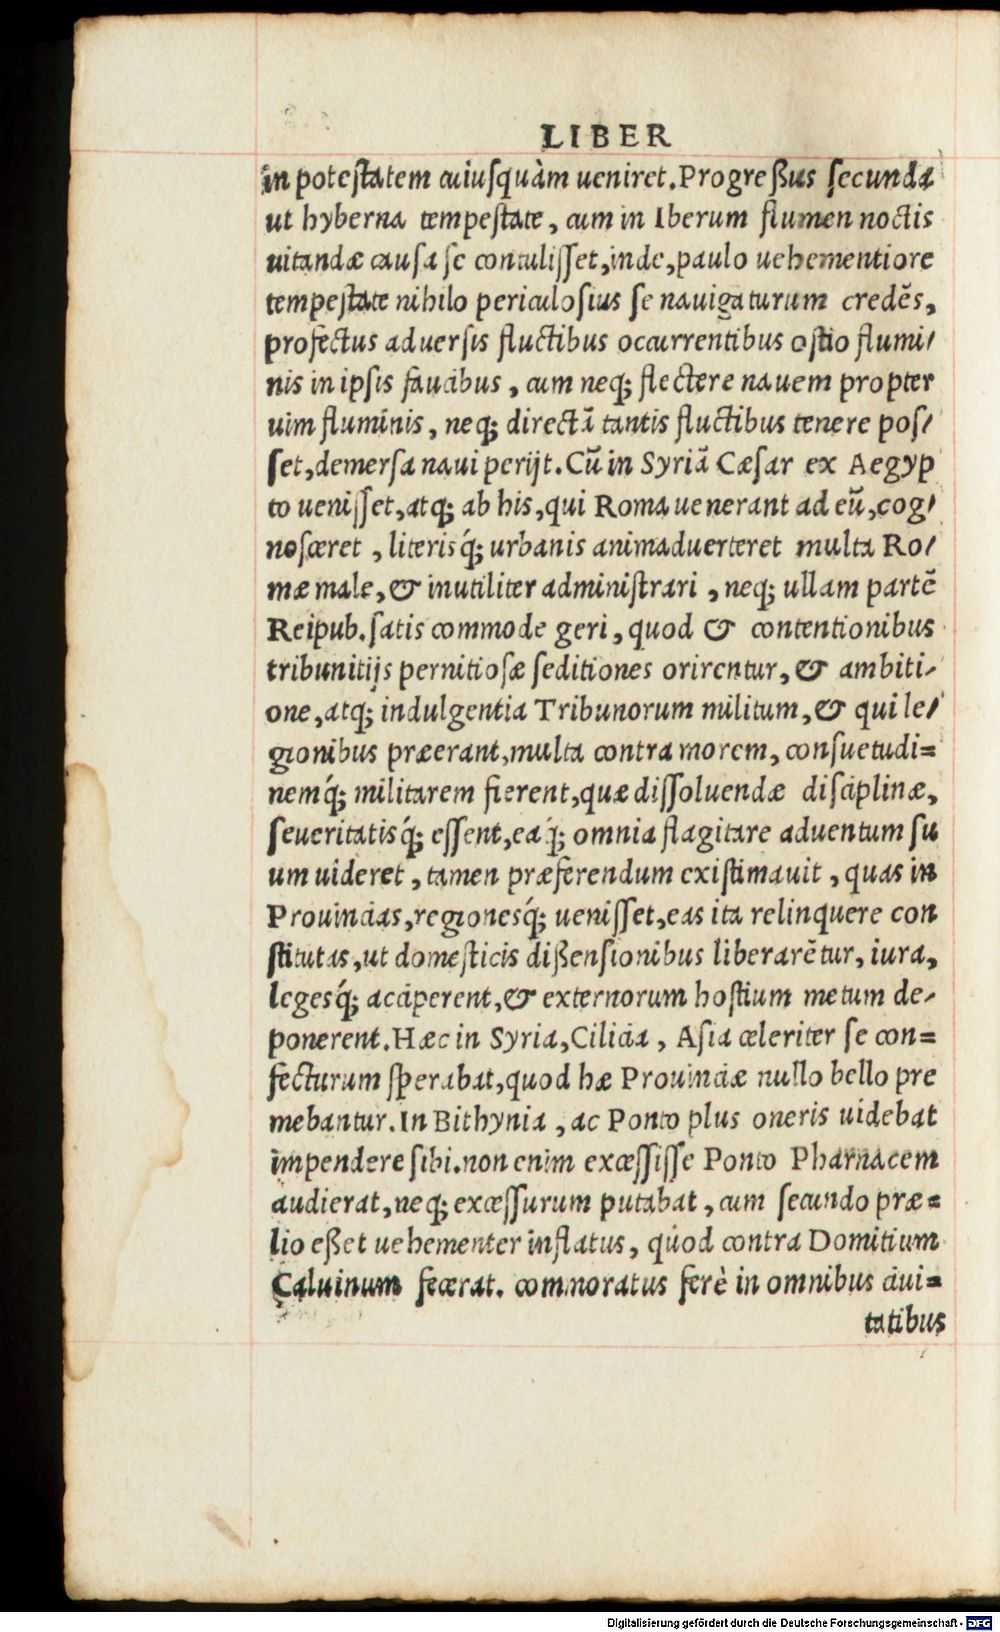 LIBER
in potestatem cuiusquàm ueniret. Progreßus secunda
ut hyberna tempestate, cum in Iberum flumen noctis
uitandæ causa se contulisset, inde, paulo uehementiore
tempestate nihilo periculosius se nauigaturum credẽs,
profectus aduersis fluctibus occurrentibus ostio flumi/
nis in ipsis faucibus, cum neq; flectere nauem propter
uim fluminis, neq; directã tantis fluctibus tenere pos/
set, demersa naui perijt. Cũ in Syriã Cæsar ex Aegyp
to uenisset, atq; ab his, qui Roma uenerant ad eũ, cog/
nosceret, literisq́; urbanis animaduerteret multa Ro/
mæ male, & inutiliter administrari, neq; ullam partẽ
Reipub. satis commode geri, quod & contentionibus
tribunitijs pernitiosæ seditiones orirentur, & ambiti/
one, atq; indulgentia Tribunorum militum, & qui le/
gionibus præerant, multa contra morem, consuetudi=
nemq́; militarem fierent, quæ dissoluendæ disciplinæ,
seueritatisq́; essent, eaq́; omnia flagitare aduentum su
um uideret, tamen præferendum existimauit, quas in
Prouincias, regionesq́; uenisset, eas ita relinquere con
stitutas, ut domesticis dißensionibus liberarẽtur, iura,
legesq́; acciperent, & externorum hostium metum de/
ponerent. Hæc in Syria, Cilicia, Asia celeriter se con=
fecturum sperabat, quod hæ Prouinciæ nullo bello pre
mebantur. In Bithynia, ac Ponto plus oneris uidebat
impendere sibi. non enim excessisse Ponto Pharnacem
audierat, neq; excessurum putabat, cum secundo præ=
lio eßet uehementer inflatus, quod contra Domitium
Caluinum fecerat. commoratus ferè in omnibus ciui=
tatibus
Digitalisierung gefördert durch die Deutsche Forschungsgemeinschaft - DFG